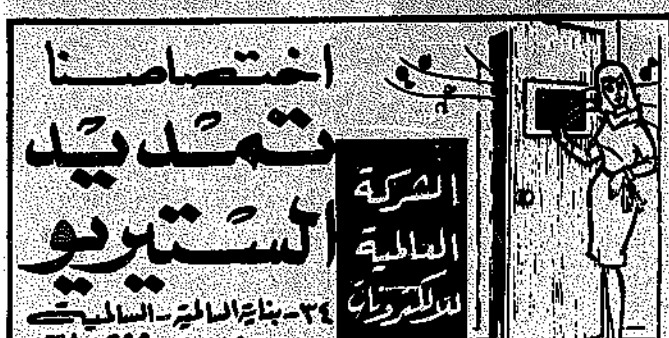 اختصاصنا
تمديد
الستيريو
الشركة
العالمية
للالكترونيات
٣٤-بناية السالمية-السالمية